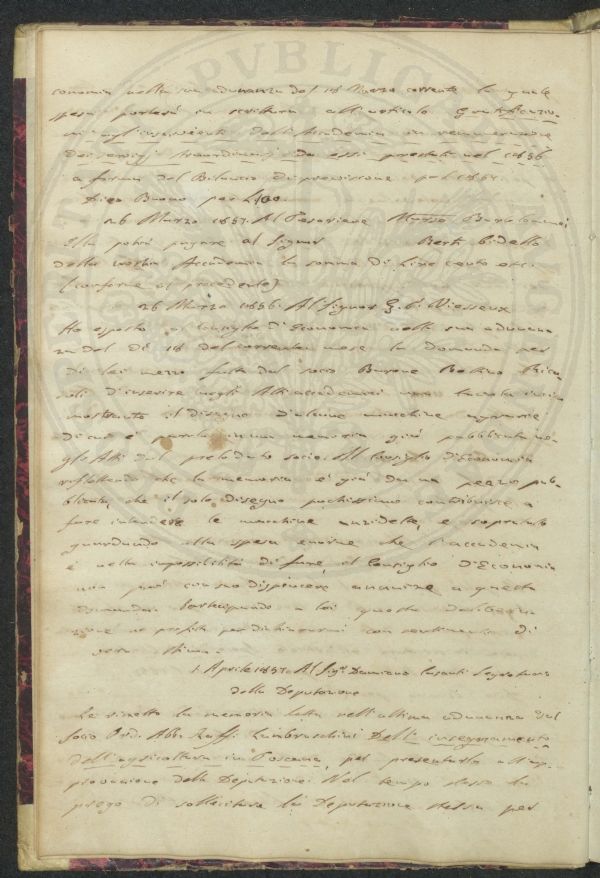 conomia nella sua adunanza del 18 Marzo corrente la quale
spesa porterà in scrittura all'articolo Gratificazio-
ni agl'inservienti dell'Accademia in remunerazione
dei servizj straordinarj da essi prestati nel 1856
a forma del Bilancio di previsione pel 1857.
Dico Buono per L 100
26 Marzo 1857. Al Tesoriere
Ella potrà pagare al Signor Berti bidello
della nostra Accademia la somma di Lire cento
(conforme al precedente)
26 Marzo 1856. Al Signor G. P. Viesseux
Ho esposto al Consiglio d'Economia nella sua adunan-
za del dì 18 del corrente mese la domanda per
di lei mezzo fatta dal socio Barone Bettino Rica-
soli d'inserire negli Atti accademici una tavola
mostrante il disegno d'alcune macchine agrarie
di cui è parola in una memoria già pubblicata ne-
gli Atti dal prelodato socio. Il Consiglio d'Economia
riflettendo che la memoria è già da un pezzo pub-
blicata, che il solo disegno pochissimo contribuisce a
fare intendere le macchine anzidette, e sopratutto
guardando alla spesa enorme che l'accademia
è nella impossibilità di fare, il Consiglio d'Economia
non può con suo dispiacere annuire a questa
domanda. Partecipando a lei questa delibera-
zione ne profitto per dichiararmi con sentimento di
vera stima.
1. Aprile 1857. Al Sig.r Damiano Casanti Segretario
della Deputazione
Le rimetto la memoria letta nell'ultima adunanza dal
Socio Ord. Abb. Raff. Lambruschini Dell'insegnamento
dell'agricoltura in Toscana, per presentarla all'ap-
provazione della Deputazione. Nel tempo stesso la
prego di sollecitare la Deputazione stessa per